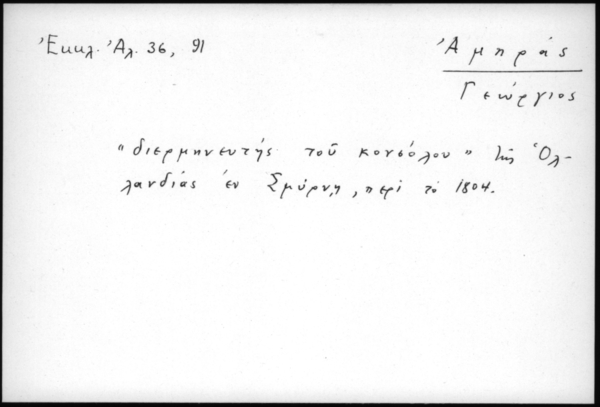 Ἐκκλ. Ἀλ. 36, 91
Ἀμηράς
Γεώργιος
"διερμηνευτής τοῦ κονσόλου" τῆς Ὁλ-
λανδίας ἐν Σμύρνῃ, περί τό 1804.